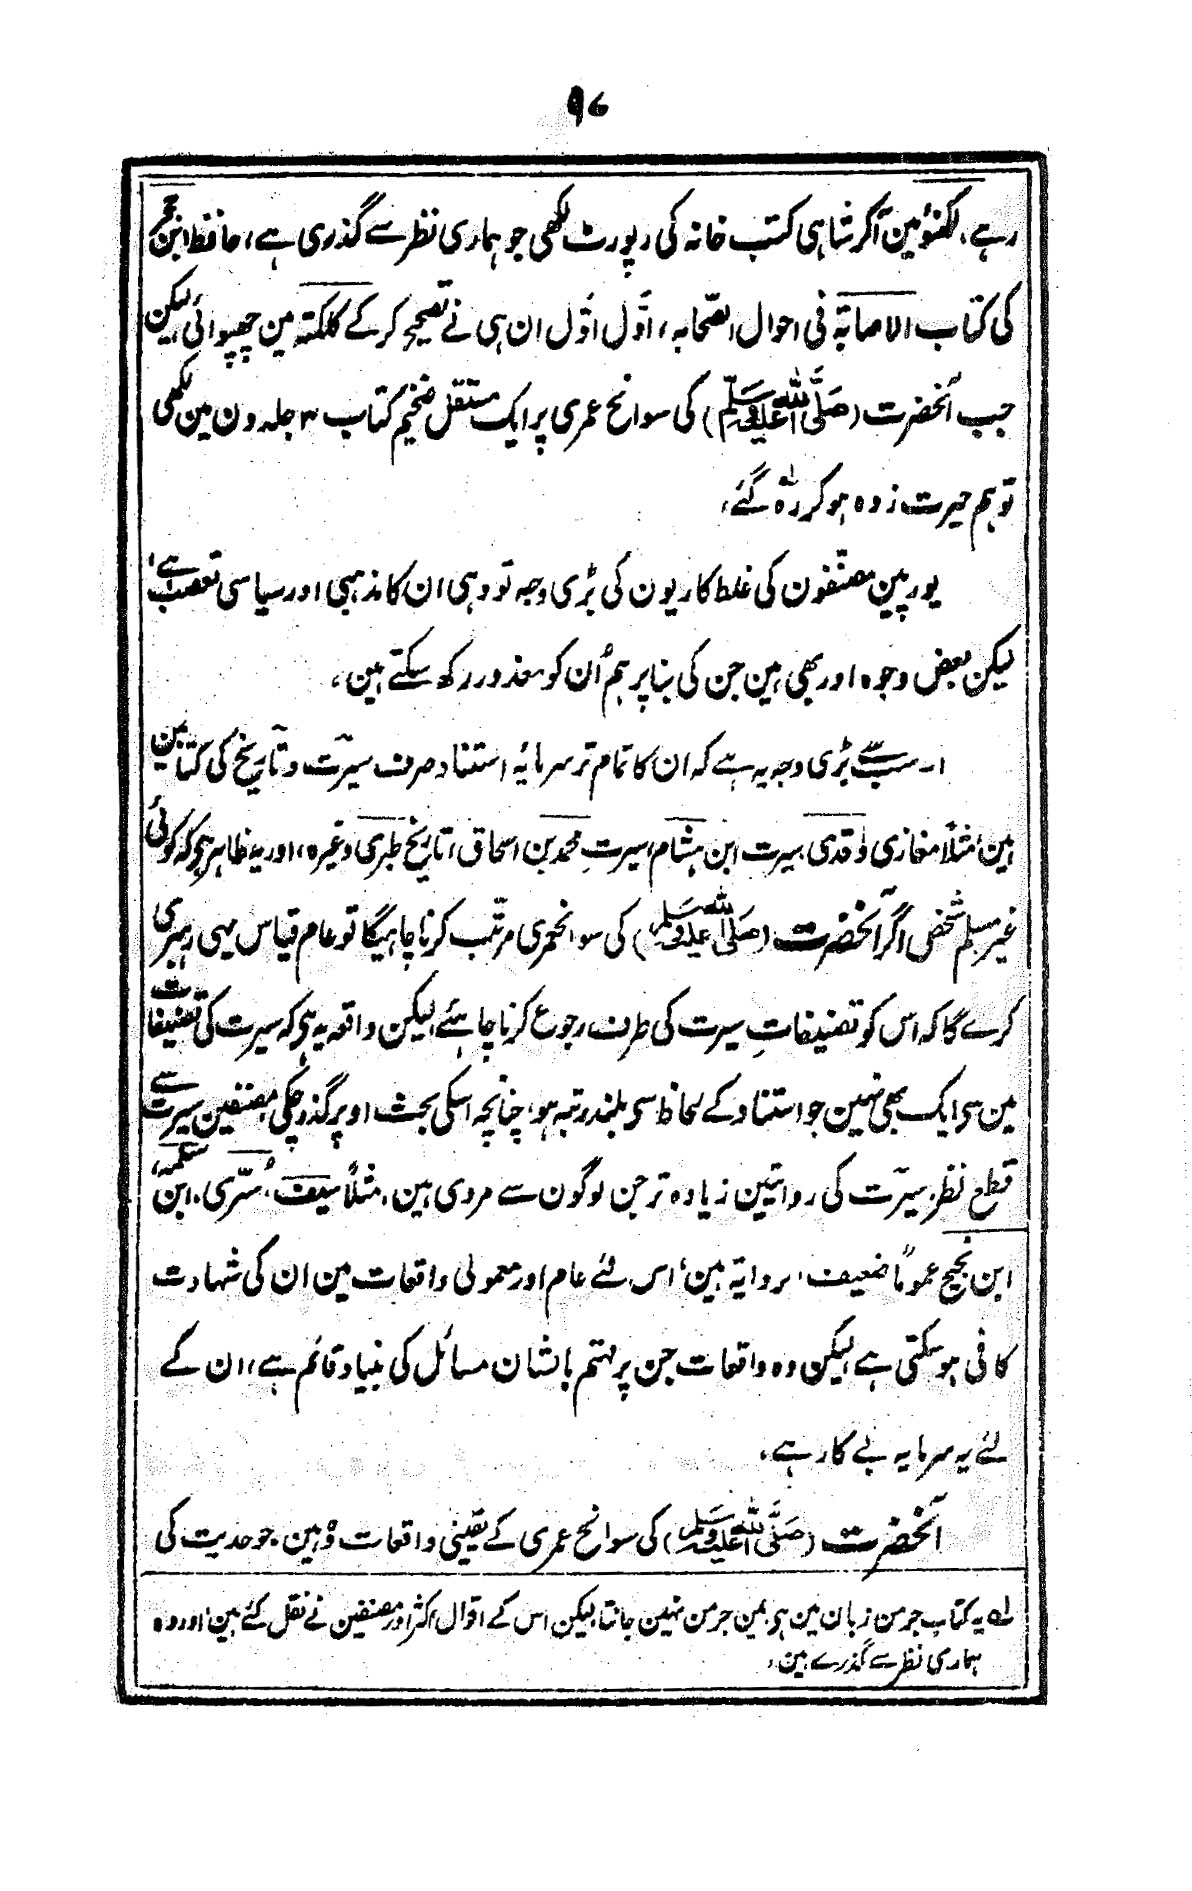 ۹۷
رہے، لکھنؤ مین آکر شاہی کتب خانہ کی رپورٹ لکھی جو ہماری نظر سے گذری ہے، حافظ ابن حجر
کی کتاب الاصابۃ فی احوال الصحابہ، اوّل اوّل ان ہی نے تصحیح کرکے کلکتہ مین چھپوائی، لیکن
جب آنحضرت (صَلَّی اللّٰہ علیہ وسلم) کی سوانح عمری پر ایک مستقل ضخیم کتاب ۳ جلدون مین لکھی
تو ہم حیرت زدہ ہوکر رہ گئے،
یورپین مصنفون کی غلط کاریون کی بڑی وجہ تو وہی ان کا مذہبی اور سیاسی تعصب ہے،
لیکن بعض وجوہ اور بھی ہین جن کی بنا پر ہم اُن کو معذور رکھ سکتے ہین،
۱۔ سب سے بڑی وجہ یہ ہے کہ ان کا تمام تر سرمایۂ استناد صرف سیرت و تاریخ کی کتابین
ہین، مثلاً مغازی واقدی، سیرت ابن ہشام، سیرتِ محمد بن اسحاق، تاریخ طبری وغیرہ، اور یہ ظاہر ہی کہ کوئی
غیر مسلم شخص اگر آنحضرت (صَلَّی اللّٰہ علیہ وسلم) کی سوانحمری مرتّب کرنا چاہیگا تو عام قیاس یہی رہبری
کرے گا کہ اس کو تصنیفاتِ سیرت کی طرف رجوع کرنا چاہئے، لیکن واقعہ یہ ہی کہ سیرت کی تصنیفات
مین سے ایک بھی نہین جو استناد کے لحاظ سی بلند رتبہ ہو، چنانچہ اسکی بحث اوپر گذر چکی، مصنفین سیرت سے
قطع نظر، سیرت کی روایتین زیادہ تر جن لوگون سے مروی ہین، مثلاً سیف، سُرّی، ابن سلمہ،
ابن نجیح عموماً ضعیف الروایۃ ہین، اس لئے عام اور معمولی واقعات مین ان کی شہادت
کافی ہوسکتی ہے، لیکن وہ واقعات جن پر مہتم بالشان مسائل کی بنیاد قائم ہے، ان کے
لئے یہ سرمایہ بے کار ہے،
آنحضرت (صَلَّی اللّٰہ علیہ وسلم) کی سوانح عمری کے یقینی واقعات وہ ہین، جو حدیث کی
لہ یہ کتاب جرمن زبان مین ہی، مین جرمن نہین جانتا، لیکن اس کے اقوال اکثر اور مصنفین نے نقل کئے ہین، اور وہ
ہماری نظر سے گذرے ہین،